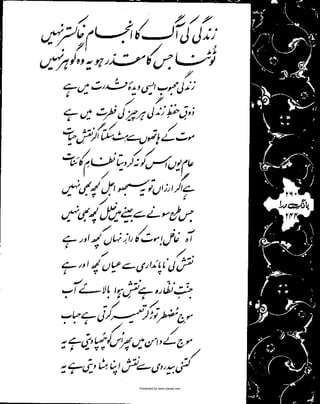 زندگی کی آگ کا انجام خاکستر نہیں
ٹوٹنا جس کا مقدر ہو یہ وہ گوہر نہیں
زندگی محبوب ایسی دیدۂ قدرت میں ہے
ذوقِ حفظِ زندگی ہر چیز کی فطرت میں ہے
موت کے ہاتھوں سے مٹ سکتا اگر نقشِ حیات
عام یوں اس کو نہ کر دیتا نظامِ کائنات
ہے اگر ارزاں تو یہ سمجھو اجل کچھ بھی نہیں
جس طرح سونے سے جینے میں خلل کچھ بھی نہیں
آہ غافل! موت کا رازِ نہاں کچھ اور ہے
نقش کی ناپائداری سے عیاں کچھ اور ہے
جنتِ نظارہ ہے نقشِ ہوا بالائے آب
موجِ مضطر توڑ کر تعمیر کرتی ہے حباب
موج کے دامن میں پھر اُس کو چھپا دیتی ہے یہ
کتنی بیدردی سے نقش اپنا مٹا دیتی ہے یہ
بانگِ درا
۲۳۲
Presented by www.ziaraat.com